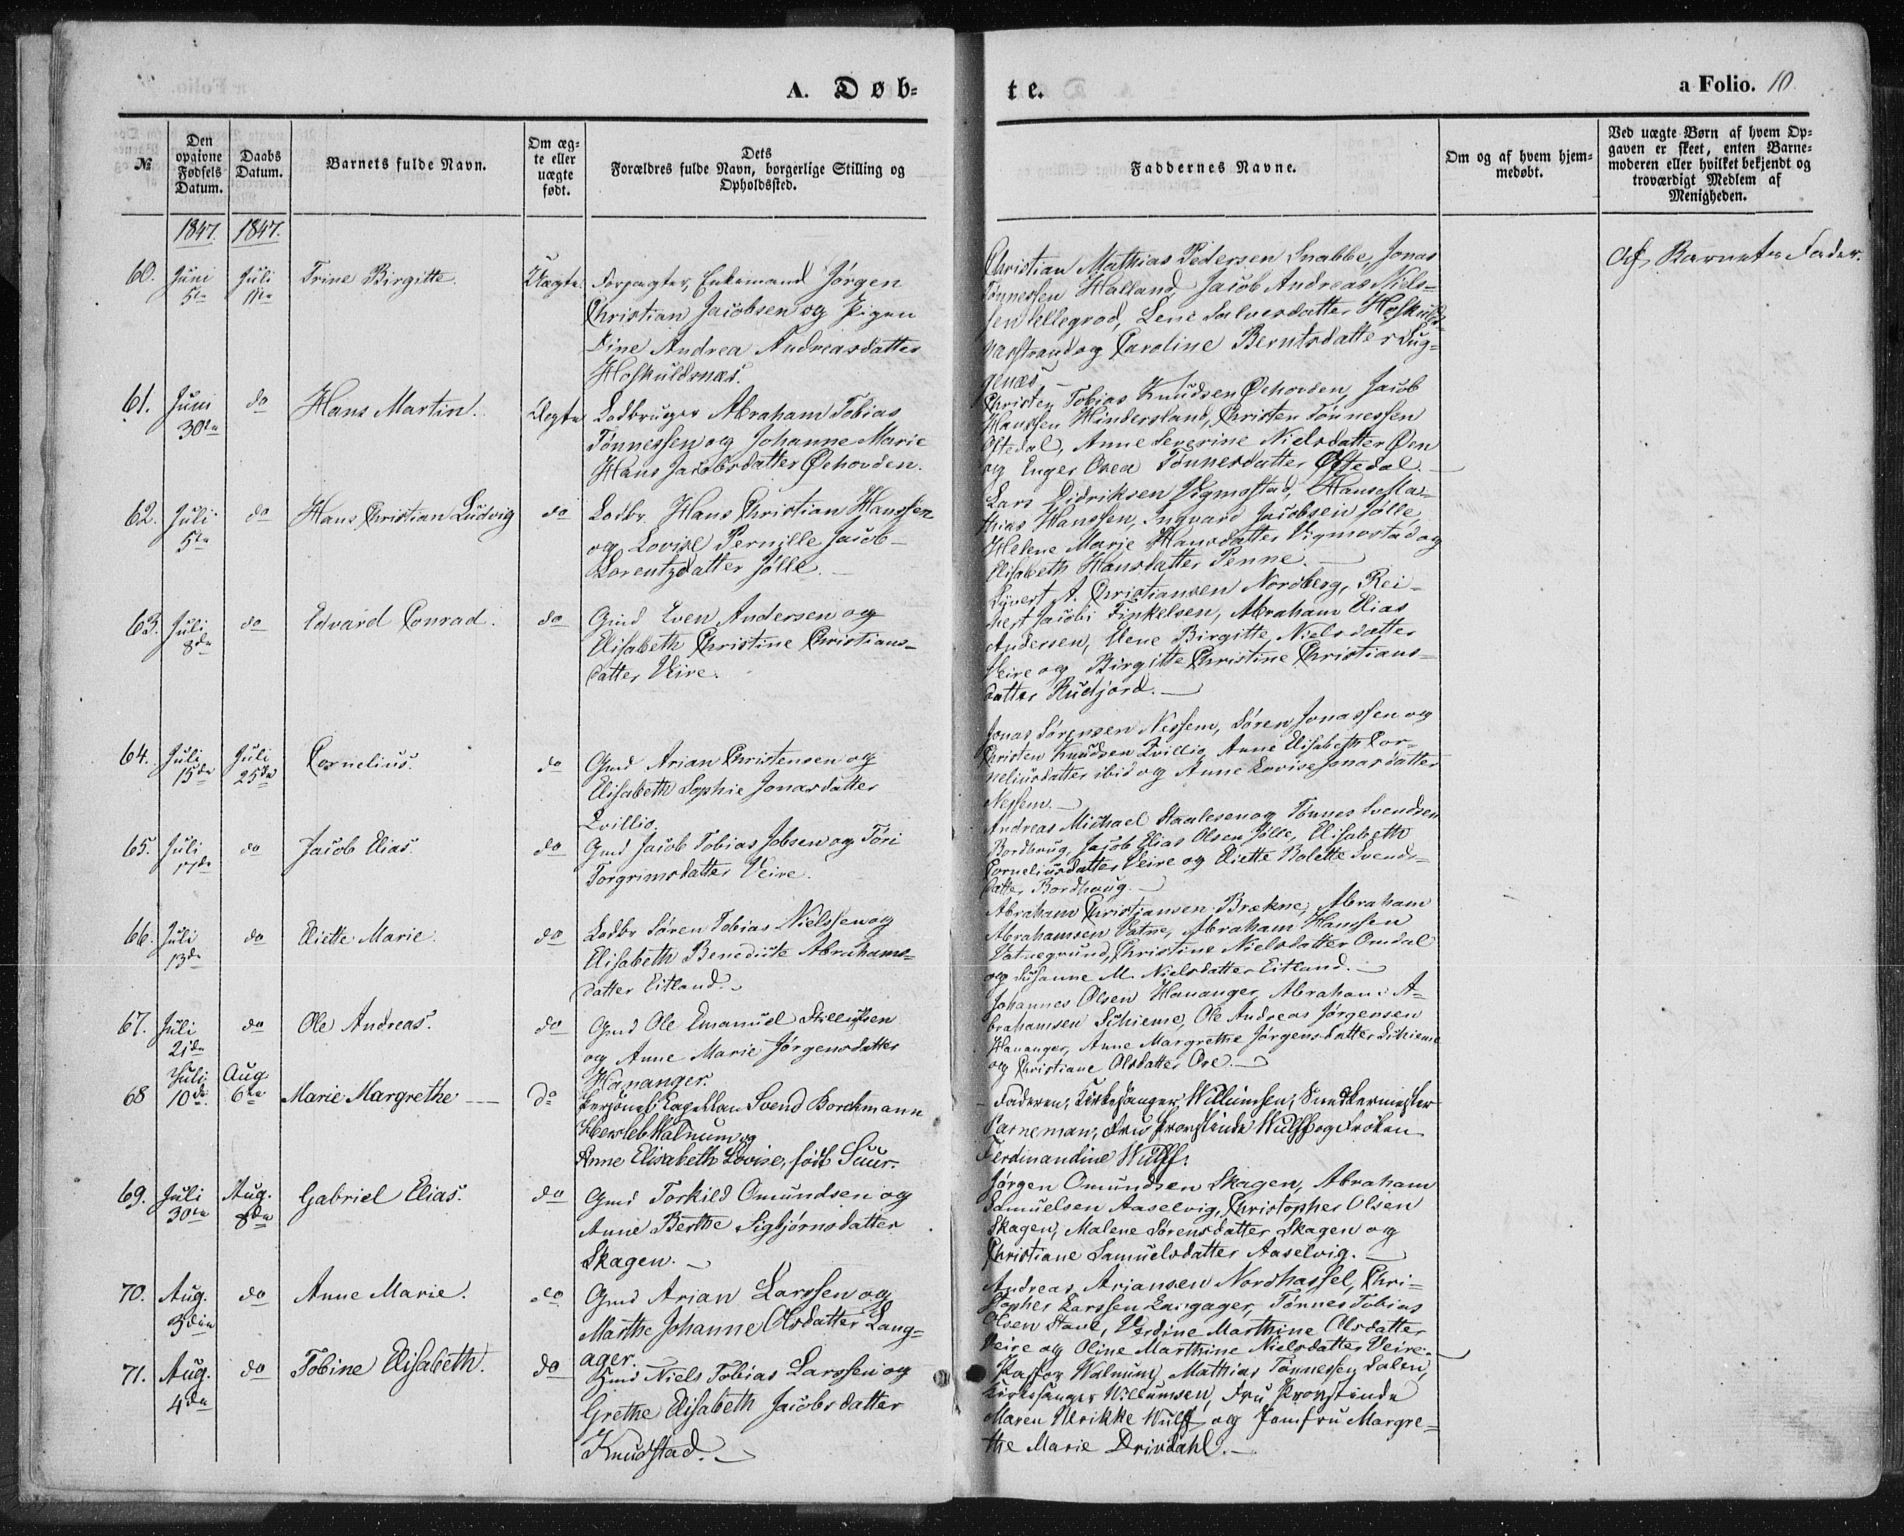 A. Døb-
te.
a Folio. 10.
№
Den opgivne Fødsels Datum.
Daabs Datum.
Barnets fulde Navn.
Om æg-
te eller
uægte
født.
Dets
Forældres fulde Navn, borgerlige Stilling og
Opholdssted.
Faddernes Navne.
Om og af hvem hjem-
medøbt.
Ved uægte Børn af hvem Op-
gaven er skeet, enten Barne-
moderen eller hvilket bekjendt og
troværdigt Medlem af
Menigheden.
1847. 1847.
60. Juni 5te Juli 11te Trine Birgitte. Uægte. Forpagter, Enkemand Jørgen
Christian Jacobsen og Pigen
Sine Andrea Andreasdatter
Hoskuldsnæs.
Christian Mathias Pedersen Snabbe, Jonas
Tønnessen Halland, Jacob Andreas Niels-
sen Ullegrod, Lene Salvesdatter
og Caroline Berntsdatter Lug-
genæs.
Af Barnets Fader.
61. Juni 30te do Hans Martin. Uægte Lodbruger Abraham Tobias
Tønnessen og Johanne Marie
Hans Jacobsdatter Øehovden.
Christen Tobias Knudsen Øehovden, Jacob
Hanssen Hindersland, Christen Tønnessen
Oftedal, Anne Severine Nielsdatter Øen
og Inger Osea Tønnesdatter Oftedal.
62. Juli 5te do Hans Christian Ludvig do Lodbr Hans Christian Hanssen
og Lovise Pernille Jacob
Lorentzdatter Jølle.
Lars Didriksen Vigmostad, Hans Ma-
thias Hanssen, Ingvard Jacobsen Jølle,
Helene Marie Hansdatter Vigmostad og
Elisabeth Hansdatter Penne.
63. Juli 8de do Edvard Conrad. do Gmd Even Andersen og
Elisabeth Christine Christians-
datter Veire.
Syvert A. Christiansen Nordberg, Rei-
nert Jacobi Finkelsen, Abraham Elias
Andersen, Elene Birgitte Nielsdatter
Veire og Birgitte Christine Christians-
datter Rudjord.
64. Juli 15de Juli 25de Cornelius. do Gmd Arian Christensen og
Elisabeth Sophie Jonasdatter
Qvillio.
Jonas Sørensen Nessem, Søren Jonassen og
Christen Knudsen Qvillio, Anne Elisabeth Cor-
neliusdatter ibid og Anne Lovise Jonasdatter
Nessem.
65. Juli 17de do Jacob Elias. do Gmd Jacob Tobias Jobsen og Tøri
Torgrimsdatter Veire.
Andreas Michael Staalesen og Tønnes Svendsen
Bordhaug, Jacob Elias Olsen Jølle, Elisabeth
Corneliusdatter Veire og Eliette Bolette Svends-
datter Bordhaug.
66. Juli 13de do Eliette Marie. do Lodbr Søren Tobias Nielssen og
Elisabeth Benedicte Abrahams-
datter Eitland.
Abraham Christjansen Brækne, Abraham
Abrahamsen Vatne, Abraham Hanssen
Vatnegrund, Christine Nielsdatter Omdal
og Susanne M. Nielsdatter Eitland.
67. Juli 21de do Ole Andreas. do Gmd Ole Emanuel
og Anne Marie Jørgensdatter
Hananger.
Johannes Olsen Hananger, Abraham A-
brahamsen Schieme, Ole Andreas Jørgensen
Hananger, Anne Margrethe Jørgensdatter Schieme
og Christiane Olsdatter Ore.
68 Juli 10de. Aug 6te Marie Margrethe do personel Capellan Svend Borchmann
Hersleb Walnum og
Anne Elisabeth Lovise, født Suur.
Faderen, Kirkesanger Willumsen, Snedkermester
Parneman, Fru Provstinde Wulff og Frøken
Ferdinandine Wulff.
69. Juli 30te Aug. 8de Gabriel Elias. do Gmd Torkild Omundsen og
Anne Berthe Sigbjørnsdatter
Skagen.
Jørgen Omundsen Skagen, Abraham
Samuelsen Aaselvig, Christopher Olsen
Skagen, Malene Sørensdatter Skagen og
Christiane Samuelsdatter Aaselvig.
70. Aug. 3die do Anne Marie. do Gmd Arian Larssen og
Marthe Johanne Olsdatter Lang-
ager.
Andreas Arjansen Nordhassel, Chri-
stopher Larssen Langager, Tønnes Tobias
Olsen Stave, Verdine Marthine Olsdatter
Veire og Oline Marthine Nielsdatter Veire.
71. Aug. 4de do Tobine Elisabeth. do Gmd Niels Tobias Larssen og
Grethe Elisabeth Jacobsdatter
Knudstad.
Pastor Walnum, Mathias Tønnessen Dalen,
Kirkesanger Willumsen, Fru Provstinde
Maren Ulrikke Wulff og Jomfru Margre-
the Marie Drivdahl.